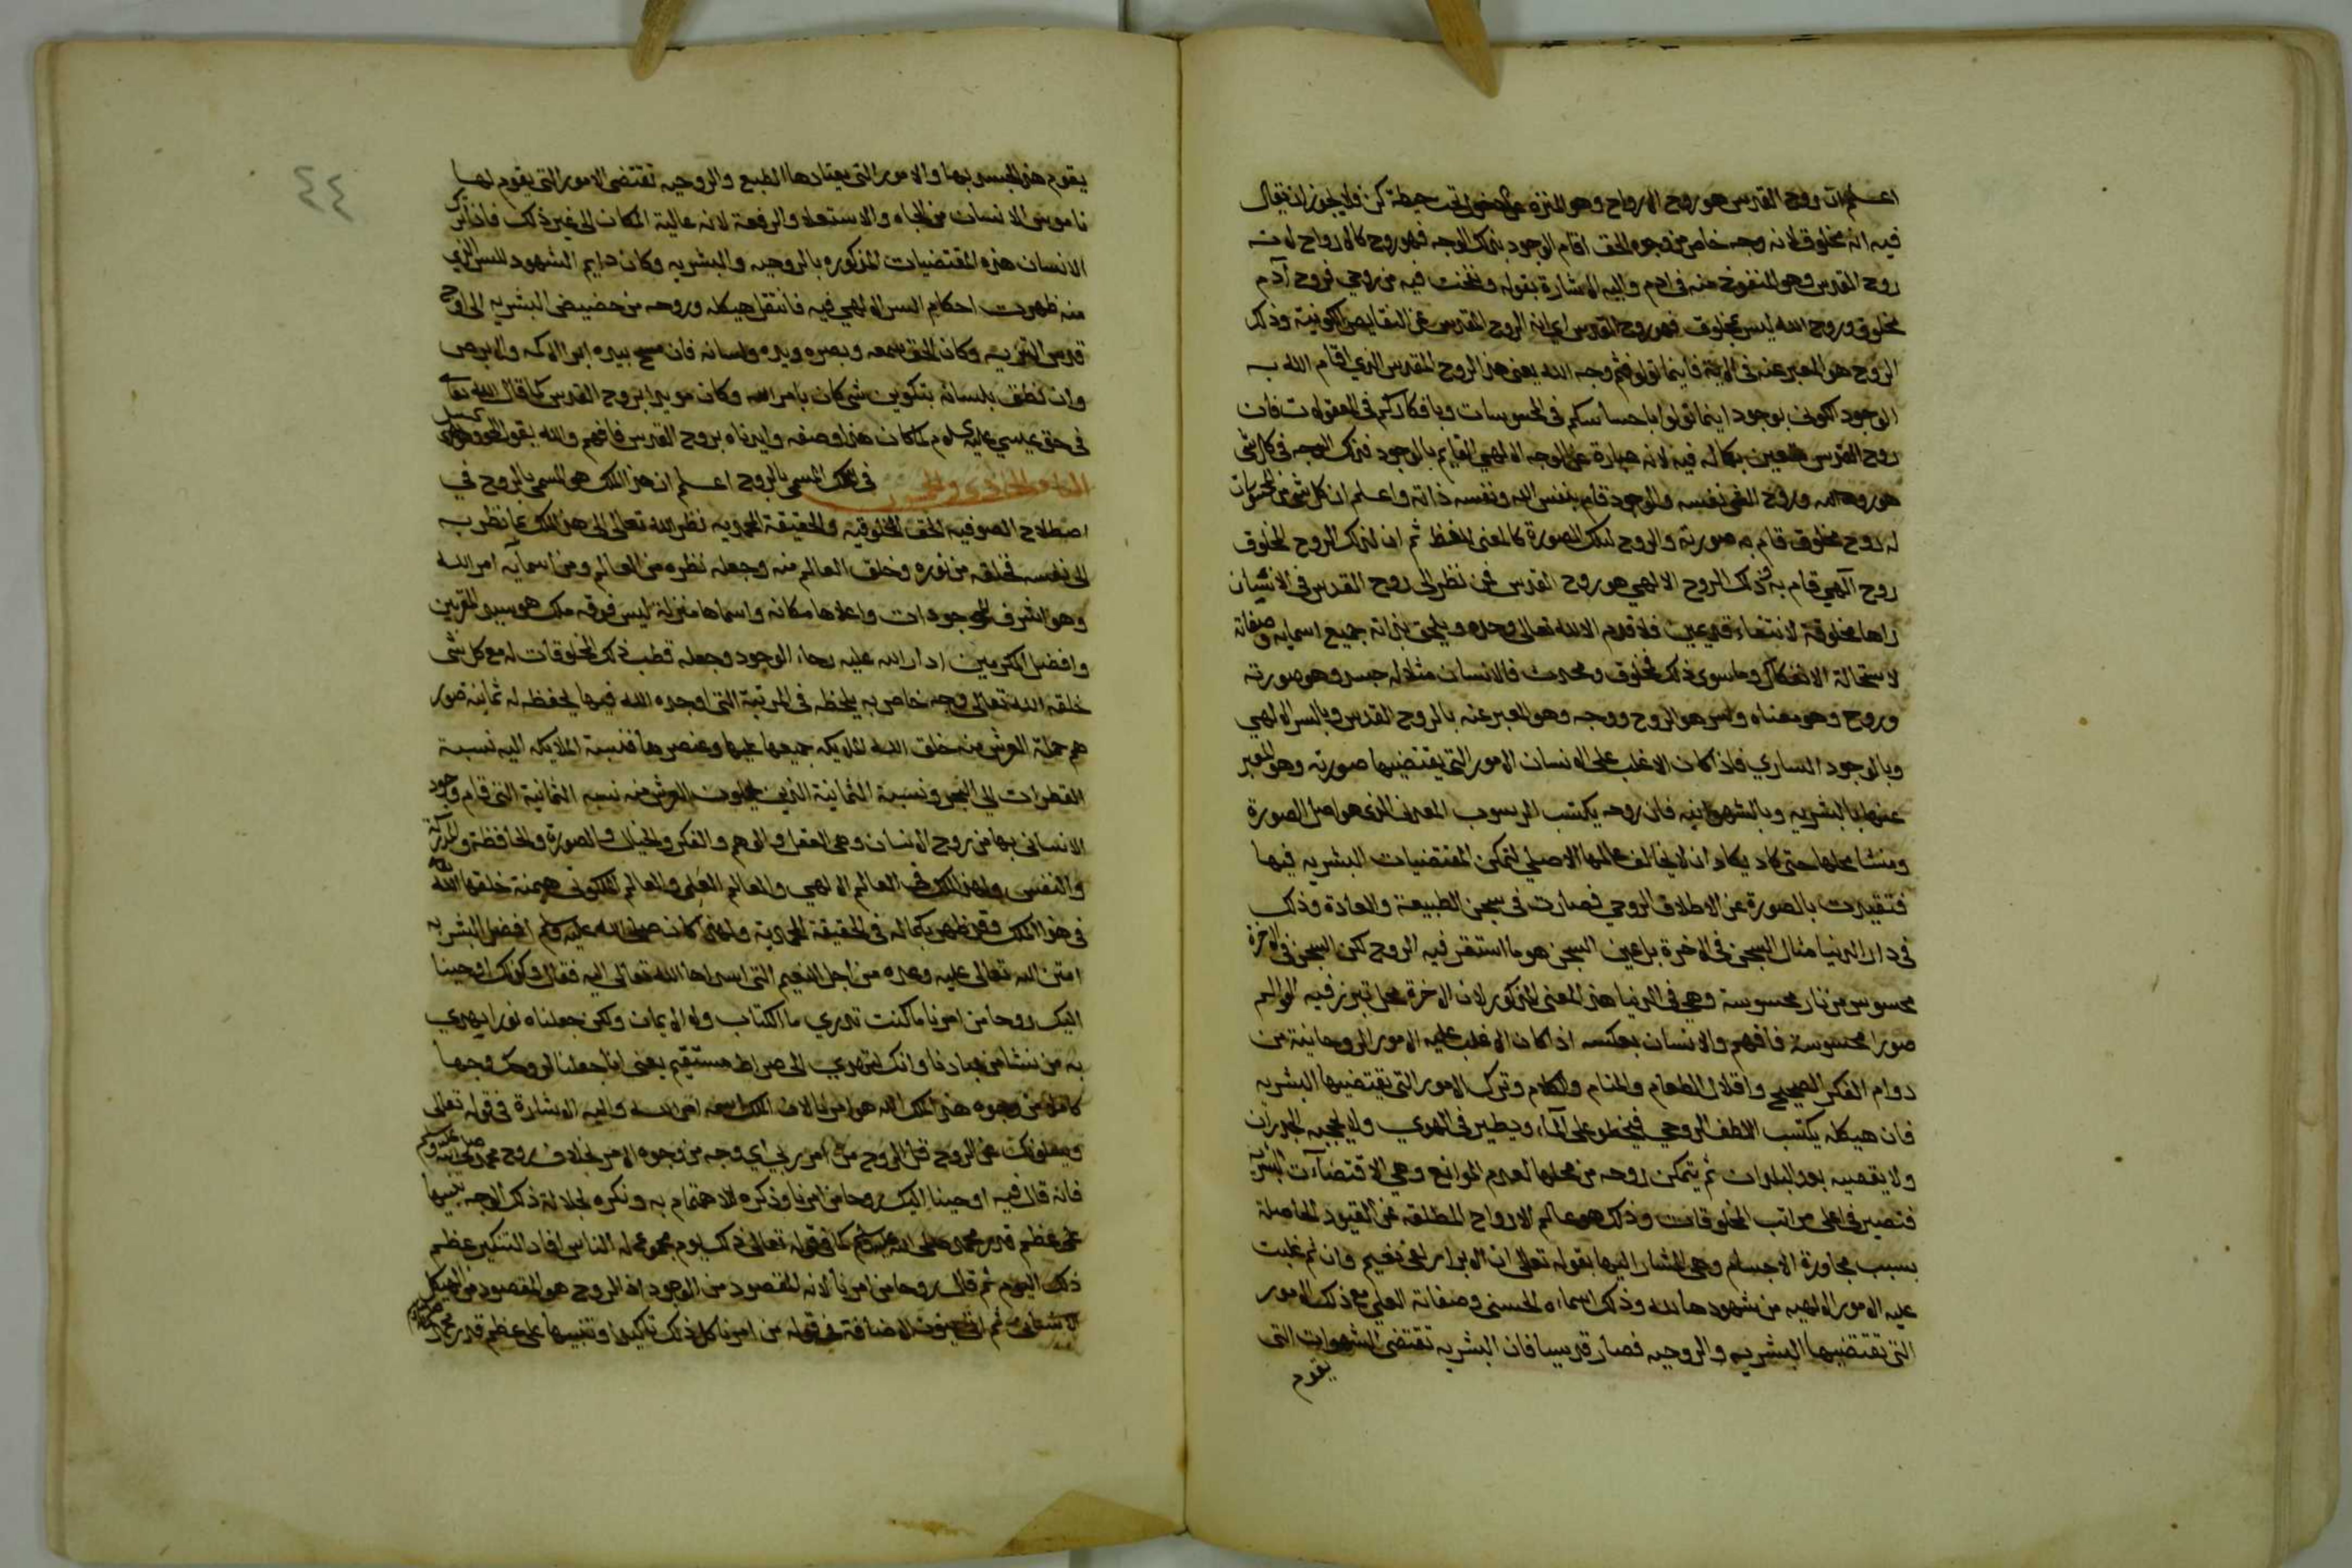 اعلم ان روح القدس هو روح الارواح وهو المنزه عن الدخول تحت حيطة كن فلا يجوز ان يقال
فيه انه مخلوق لانه وجه خاص من وجوه الحق اقام الوجود بذلك الوجه فهو روح لا كالارواح لانه
روح القدس وهو المنفوخ منه في ادم واليه الاشارة بقوله ونفخت فيه من روحي فروح آدم
مخلوق وروح الله ليس بمخلوق فهو روح القدس اي انه الروح المقدس عن النقايص الكونية وذلك
الروح هو المعبر عنه في الاية فاينما تولوا فثم وجه الله يعني هذا الروح المقدس الذي اقام الله به
الوجود الكوني بوجود اينما تولوا باحساسكم في المحسوسات وبافكاركم في المعقولات فان
روح القدس متعين بكماله فيه لانه عبارة عن الوجه الالهي القايم بالوجود فذلك الوجه في كل شي
هو روح الله وروح الشي نفسه والوجود قام بنفس الله ونفسه ذاته واعلم ان كل شي من المحسوسات
له روح مخلوق قام به صورته والروح لتلك الصورة كالمعنى للفظ ثم ان لذلك الروح المخلوق
روح آلهي قام به وذلك الروح الالهي هو روح القدس فمن نظر الى روح القدس في الانسان
راها مخلوقة لانتفاء قديمين فلا قدم الا لله تعالى وحده ويلحق بذاته جميع اسمايه وصفاته
لاستحالة الانفكاك وما سوى ذلك فمخلوق ومحدث فالانسان مثلا له جسد وهو صورته
وروح وهو معناه وسر هو الروح ووجه وهو المعبر عنه بالروح القدس وبالسر الالهي
وبالوجود الساري فاذا كان الاغلب على الانسان الامور التي يقتضيها صورته وهو المعبر
عنها بالبشريه وبالشهوانيه فان روحه يكتسب الرسوب المعدني الذي هو اصل الصورة
ومنشا محلها حتى كاد يكاد ان لا يخالف عالمها الاصلي لتمكن المقتضيات البشريه فيها
فتقيدت بالصورة عن الاطلاق الروحي فصارت في سجن الطبيعة والعادة وذلك
في دار الدنيا مثال السجين في الاخرة بل عين السجن هو ما استقر فيه الروح لكن السجن في الاخرة
محسوس من نار محسوسة وهي في الدنيا هذا المعنى المذكور لان الاخرة محل تبرز فيه المعاني
صورا محسوسة فافهم والانسان بعكسه اذا كان الاغلب عليه الامور الروحانية من
دوام الفكر الصحيح واقلال الطعام والمنام والكلام وترك الامور التي تقتضيها البشريه
فان هيكله يكتسب اللطف الروحي فيخطو على المآء ويطير في الهوي ولا يحجبه الجدران
ولا يقصيه بعد البلدان ثم يتمكن روحه من محلها لعدم الموانع وهي الاقتضاآت البشريه
فتصير في اعلى مراتب المخلوقات وذلك هو عالم الارواح المطلقه عن القيود الحاصلة
بسبب مجاورة الاجسام وهي المشار اليها بقوله تعالى ان الابرار لفي نعيم وان لم غلبت
عليه الامور الالهيه من شهودها لله وذلك اسماءه الحسنى وصفاته العلى مع ذلك الامور
التي تقتضيها البشريه والروحيه فصار قدسيا فان البشريه تقتضى الشهوات التي
يقوم
٤٤
يقوم هذا الجسد بها والامور التي يعتادها الطبع والروحيه تقتضى الامور التي يقوم لها
ناموس الانسان من الجاه والاستعلاء والرفعة لانه عالية المكان الى غير ذلك فاذا ترك
الانسان هذه المقتضيات المذكوره بالروحيه والبشريه وكان دايم الشهود للسر الذي
منه ظهرت احكام السر الالهي فيه فانتقل هيكله وروحه من حضيض البشريه الى اوج
قدس التنزيه وكان الحق سمعه وبصره ويده ولسانه فان مسح بيده ابرا الاكمه والابرص
وان نطق بلسانه بتكوين شي كان بامر الله وكان مويدا بروح القدس كما قال الله تعالى
في حق عيسي عليه السلام لما كان هذا وصفه وايدناه بروح القدس فافهم والله يقول الحق وهو يهدي السبيل
الباب الحادي والخمسون في الملك المسمى بالروح اعلم ان هذا الملك هو المسمى بالروح في
اصطلاح الصوفيه الحق المخلوق به والحقيقة المحمديه نظر الله تعالى الى هذا الملك بما نظر به
الى نفسه فخلقه من نوره وخلق العالم منه وجعله نظره من العالم ومن اسمآيه امر الله
وهو اشرف الموجودات واعلاها مكانه واسماها منزلة ليس فوقه ملك هو سيد المقربين
وافضل المكرمين ادار الله عليه رحاء الوجود وجعله قطب فلك المخلوقات له مع كل شي
خلقه الله تعالى وجه خاص به يلحظه في المرتبة التي اوجده الله فيها يحفظه له ثمانية صور
هم حملة العرش منه خلق الله الملايكه جميعها عليها وعنصرها فنسبة الملايكه اليه نسبة
القطرات الى البحر ونسبة الثمانية الذين يحملون العرش منه نسبه الثمانية التي قام وجود
الانساني بها من روح الانسان وهي العقل والوهم والفكر والخيال والصورة والحافظة والمدركة
والنفس ولهذا الملك في العالم الالهي والعالم العلى والعالم الملكوتي هيمنة خلقها الله
في هذا الملك وقد ظهر بكماله في الحقيقة المحمدية ولهذا كان صلى الله عليه وسلم افضل البشريه
امتن الله تعالى عليه وعده من اجل النعيم التي اسداها الله تعالى اليه فقال وكذلك اوحينا
اليك روحا من امرنا ما كنت تدري ما الكتاب ولا الايمان ولكن جعلناه نورا نهدي
به من نشا من عبادنا وانك لتهدي الى صراط مستقيم يعني انا جعلنا لروحك وجها
كاملا من وجوه هذا الملك الذي هو امرنا لان الملك اسمه امر الله واليه الاشارة في قوله تعالى
ويسئلونك عن الروح قل الروح من امر ربي اي وجه من وجوه الامر بخلاف روح محمد صلى الله عليه وسلم
فانه قال فيه اوحينا اليك روحا من امرنا وذكره للاهتمام به ونكره لجلالة ذلك الوجه تنبيها
على عظم قدر محمد صلى الله عليه وسلم كما في قوله تعالى ذلك يوم مجموع له الناس افاد التنكير عظم
ذلك اليوم ثم قال روحا من امرنا لانه المقصود من الوجود اذ الروح هو المقصود من الهيكل
الانساني ثم اتى بنون الاضافة في قوله من امرنا كل ذلك تاكيدا وتنبيها على عظم قدر محمد